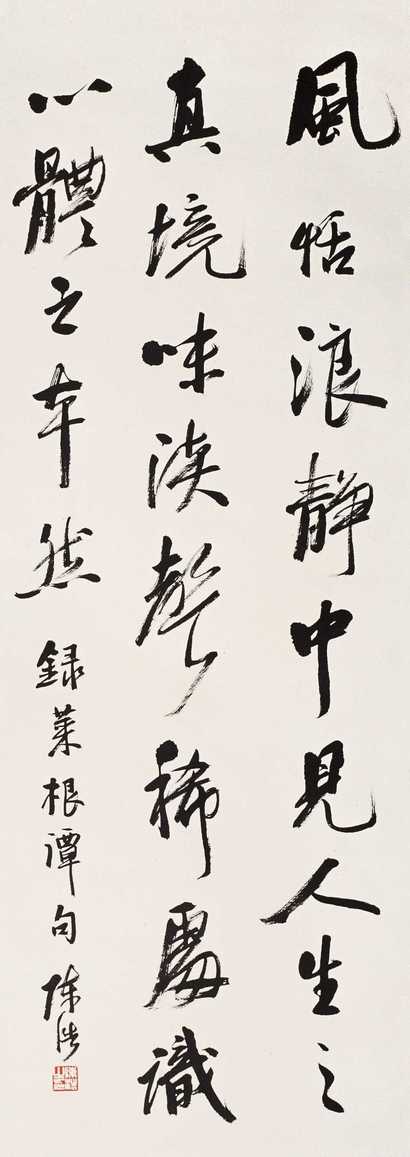 風恬浪静中見人生之
真境味淡聲稀處識
心體之本然
録菜根譚句 陈浩